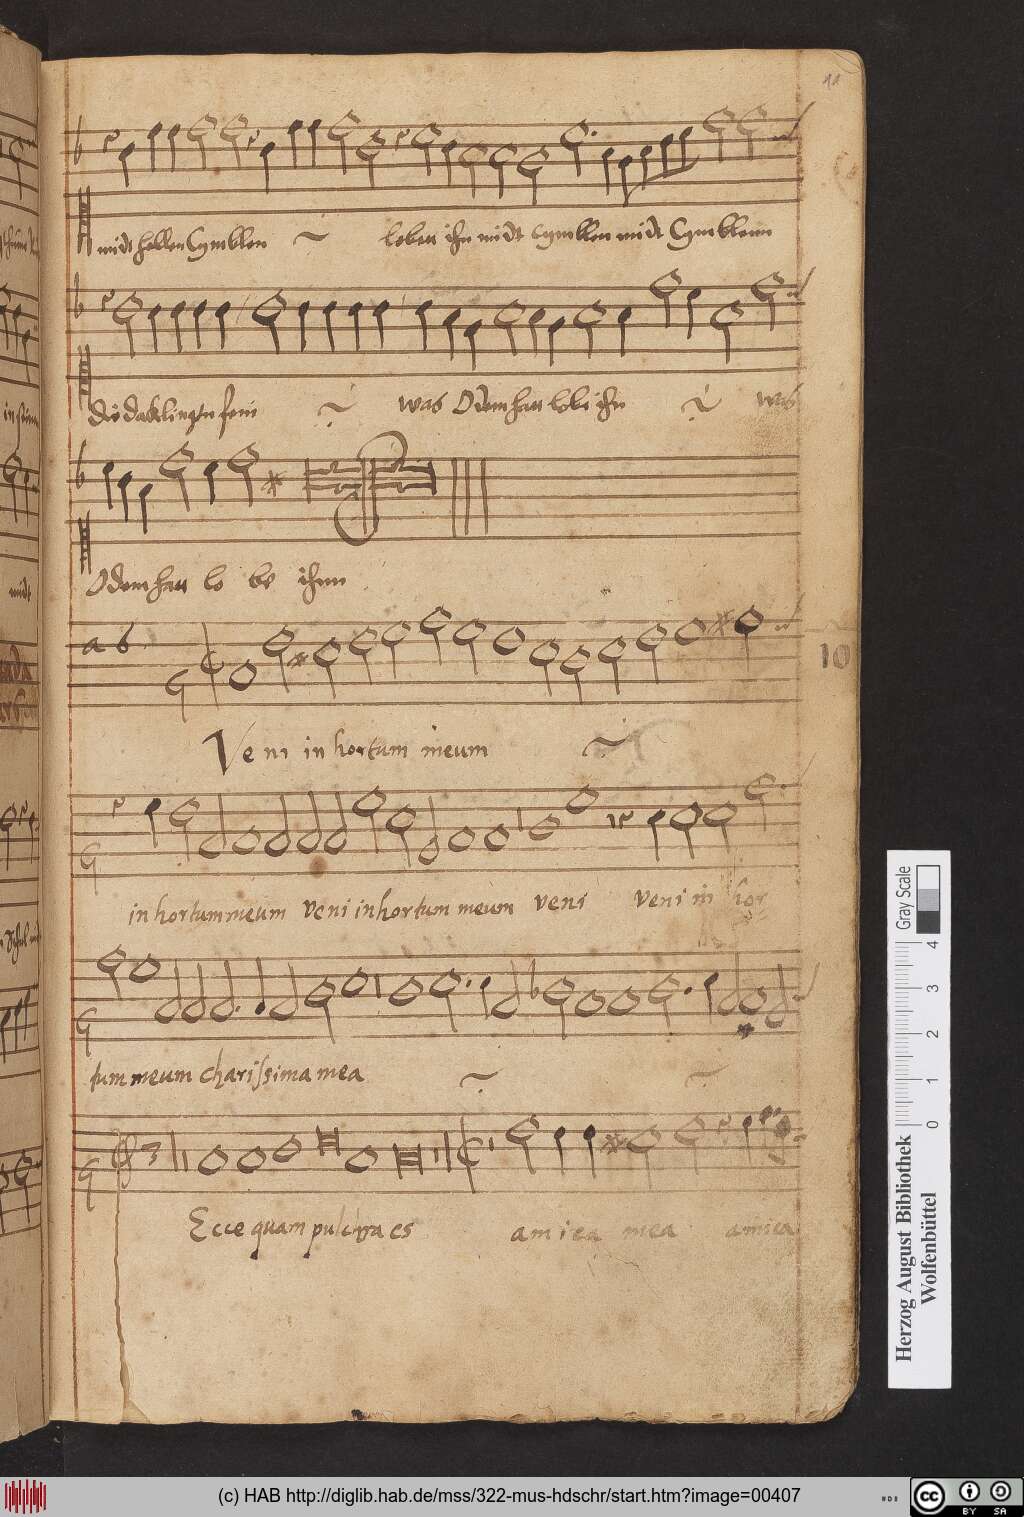 11
midt hellen Cymblen
loben ihn midt Cymblen midt Cymblenn
die da klingen fein
was Odem hatt lobe ihn
was
Odem hatt lo be ihnn
a 6
10
Veni in hortum meum
in hortum meum veni in hortum meum veni veni in hor
tum meum charissima mea
3
Ecce quam pulchra es amica mea amica
Gray Scale
0 1 2 3 4
Herzog August Bibliothek
Wolfenbüttel
(c) HAB http://diglib.hab.de/mss/322-mus-hdschr/start.htm?image=00407
cc BY SA